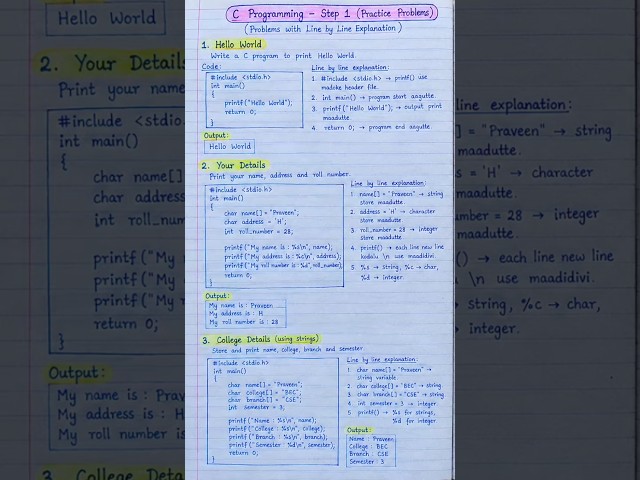 C Programming - Step 1 (Practice Problems)
(Problems with Line by Line Explanation)
1. Hello World
Write a C program to print Hello World.
Code:
#include <stdio.h>
int main()
{
printf("Hello World");
return 0;
}
Output:
Hello World
Line by line explanation:
1. #include <stdio.h> → printf() use
madoke header file.
2. int main() → program start aagutte.
3. printf("Hello World"); → output print
maadutte.
4. return 0; → program end aagutte.
2. Your Details
Print your name, address and roll number.
#include <stdio.h>
int main()
{
char name[] = "Praveen";
char address = 'H';
int roll_number = 28;
printf("My name is : %s\n", name);
printf("My address is : %c\n", address);
printf("My roll number is : %d", roll_number);
return 0;
}
Line by line explanation:
1 name[] = "Praveen" → string
store maadutte.
2 address = 'H' → character
store maadutte.
3 roll_number = 28 → integer
store maadutte.
4 printf() → each line new line
kodalu \n use maadidivi.
5 %s → string, %c → char,
%d → integer.
Output:
My name is : Praveen
My address is : H
My roll number is : 28
3. College Details (using strings)
Store and print name, college, branch and semester.
#include <stdio.h>
int main()
{
char name[] = "Praveen";
char college[] = "BEC";
char branch[] = "CSE";
int semester = 3;
printf("Name : %s\n", name);
printf("College : %s\n", college);
printf("Branch : %s\n", branch);
printf("Semester : %d\n", semester);
return 0;
}
Line by line explanation:
1 char name[] = "Praveen" →
string variable.
2 char college[] = "BEC" → string
3 char branch[] = "CSE" → string
4 int semester = 3 → integer
5 printf() → %s for strings,
%d for integer.
Output:
Name : Praveen
College : BEC
Branch : CSE
Semester : 3
2. Your Details
Print your name
#include <stdio.h>
int main()
{
char name[]
char address
int roll_num
printf("My
printf("My
printf("My
return 0;
}
Output:
My name is : Prav
My address is : H
My roll number is
3. College Deta
line explanation:
] = "Praveen" → string
maadutte.
s = 'H' → character
maadutte.
umber = 28 → integer
maadutte.
() → each line new line
\n use maadidivi.
→ string, %c → char,
→ integer.